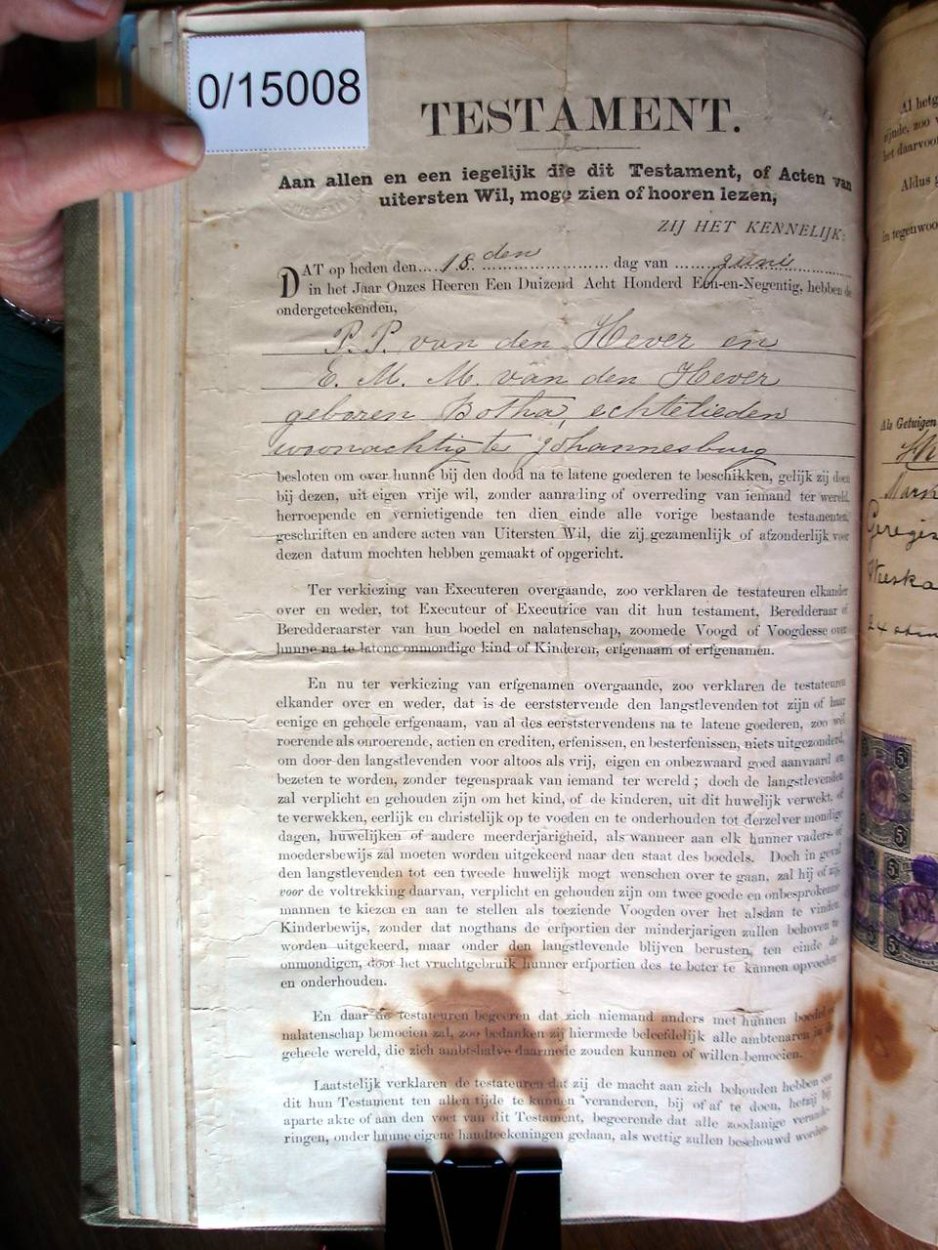 0/15008
TESTAMENT.
Aan allen en een iegelijk die dit Testament, of Acten van
uitersten Wil, moge zien of hooren lezen,
ZIJ HET KENNELIJK:
DAT op heden den....18 den.................... dag van ......Juni..............
in het Jaar Onzes Heeren Een Duizend Acht Honderd Eén-en-Negentig, hebben de
ondergeteekenden,
P. P. van den Hever en
E. M. M. van den Hever
geboren Botha, echtelieden
woonachtig te Johannesburg
besloten om over hunne bij den dood na te latene goederen te beschikken, gelijk zij doen
bij dezen, uit eigen vrije wil, zonder aanrading of overreding van iemand ter wereld,
herroepende en vernietigende ten dien einde alle vorige bestaande testamenten,
geschriften en andere acten van Uitersten Wil, die zij gezamenlijk of afzonderlijk voor
dezen datum mochten hebben gemaakt of opgericht.
Ter verkiezing van Executeren overgaande, zoo verklaren de testateuren elkander
over en weder, tot Executeur of Executrice van dit hun testament, Beredderaar of
Beredderaarster van hun boedel en nalatenschap, zoomede Voogd of Voogdesse over
hunne na te latene onmondige kind of Kinderen, erfgenaam of erfgenamen.
En nu ter verkiezing van erfgenamen overgaande, zoo verklaren de testateuren
elkander over en weder, dat is de eerststervende den langstlevenden tot zijn of haar
eenige en geheele erfgenaam, van al des eerststervendens na te latene goederen, zoo wel
roerende als onroerende, actien en crediten, erfenissen, en besterfenissen, niets uitgezonderd,
om door den langstlevenden voor altoos als vrij, eigen en onbezwaard goed aanvaard en
bezeten te worden, zonder tegenspraak van iemand ter wereld; doch de langstlevenden
zal verplicht en gehouden zijn om het kind, of de kinderen, uit dit huwelijk verwekt, of
te verwekken, eerlijk en christelijk op te voeden en te onderhouden tot derzelver mondige
dagen, huwelijken of andere meerderjarigheid, als wanneer aan elk hunner vaders- of
moedersbewijs zal moeten worden uitgekeerd naar den staat des boedels. Doch in geval
den langstlevenden tot een tweede huwelijk mogt wenschen over te gaan, zal hij of zij,
voor de voltrekking daarvan, verplicht en gehouden zijn om twee goede en onbesprokene
mannen te kiezen en aan te stellen als toeziende Voogden over het alsdan te vinden
Kinderbewijs, zonder dat nogthans de erfportien der minderjarigen zullen behoven te
worden uitgekeerd, maar onder den langstlevende blijven berusten, ten einde de
onmondigen, door het vruchtgebruik hunner erfportien des te beter te kunnen opvoeden
en onderhouden.
En daar de testateuren begeeren dat zich niemand anders met hunnen boedel of
nalatenschap bemoeien zal, zoo bedanken zij hiermede beleefdelijk alle ambtenaren in de
geheele wereld, die zich ambtshalve daarmede zouden kunnen of willen bemoeien.
Laatstelijk verklaren de testateuren dat zij de macht aan zich behouden hebben om
dit hun Testament ten allen tijde te kunnen veranderen, bij of af te doen, hetzij bij
aparte akte of aan den voet van dit Testament, begeerende dat alle zoodanige verande-
ringen, onder hunne eigene handteekeningen gedaan, als wettig zullen beschouwd worden.
Al hetg
zijnde, zoo
het daarvoor
Aldus g
in tegenwoo
Als Getuigen
Marsh
Geregis
Weeska
5
5